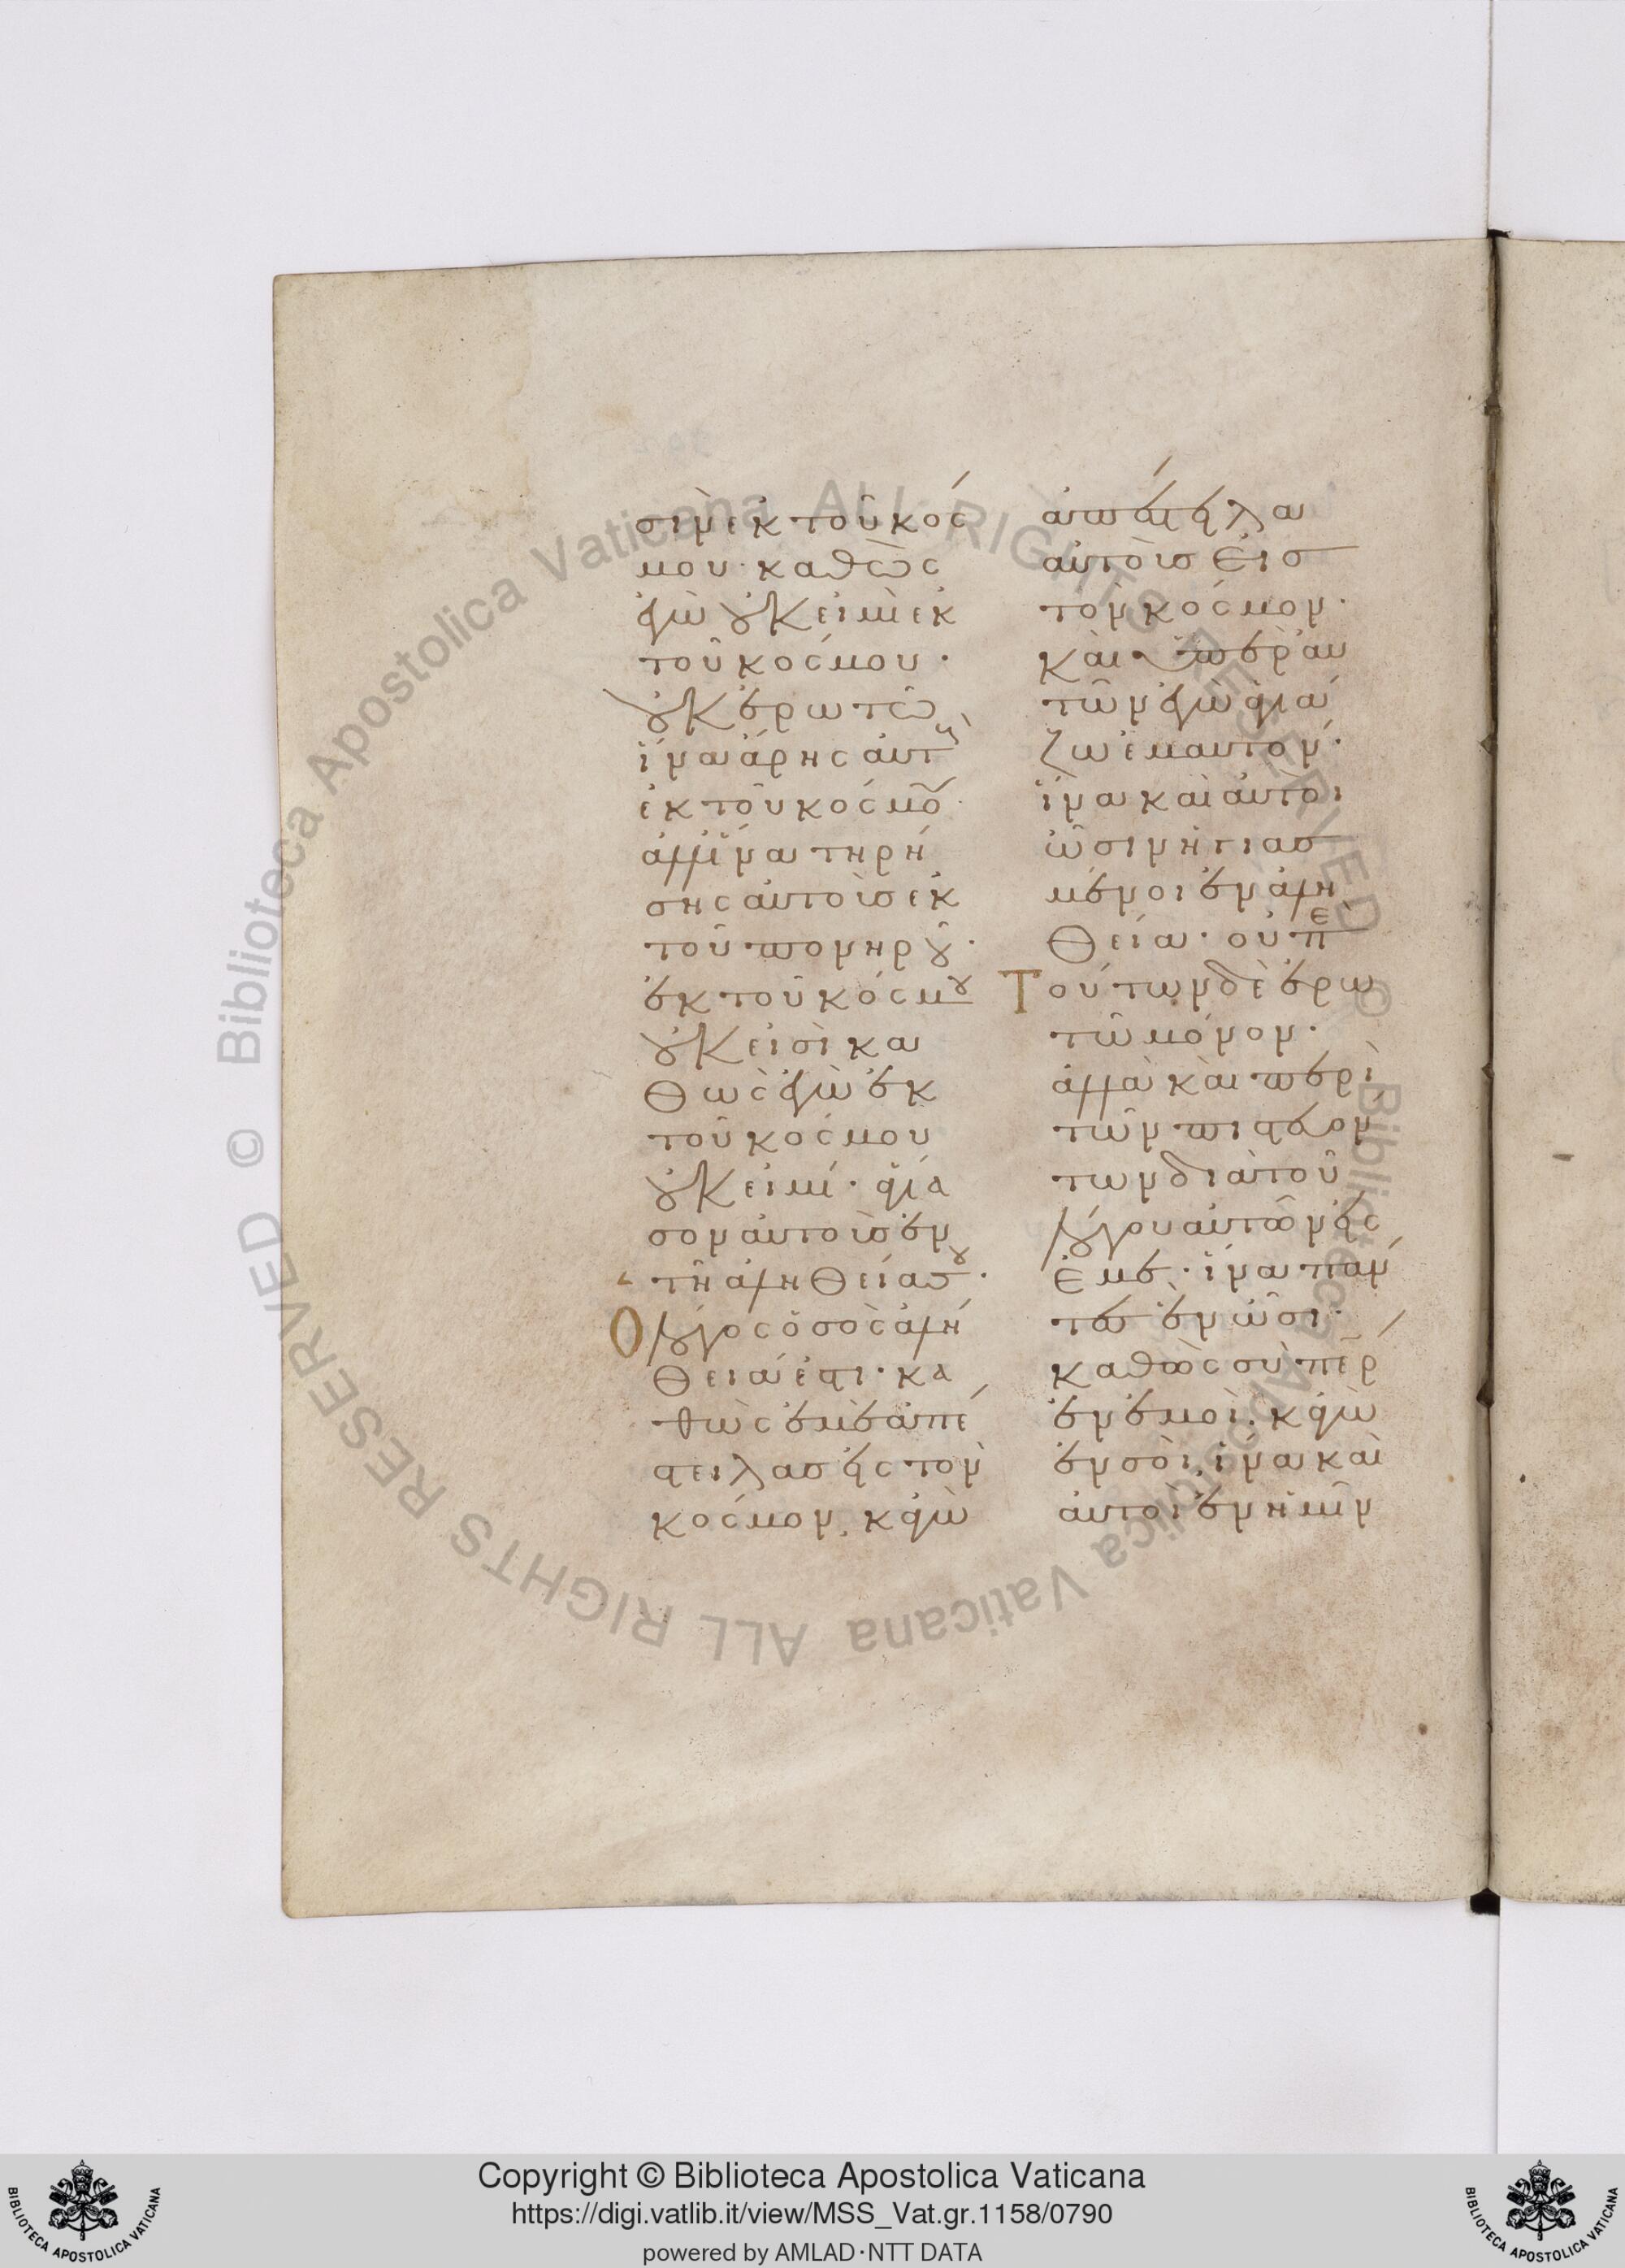 σὶν ἐκ τοῦ κόσ
μου· καθὼς
ἐγὼ οὐκ εἰμὶ ἐκ
τοῦ κόσμου·
οὐκ ἐρωτῶ
ἵνα ἄρης αὐτοὺς
ἐκ τοῦ κόσμου·
ἀλλ' ἵνα τηρή
σης αὐτοὺς ἐκ
τοῦ πονηροῦ·
ἐκ τοῦ κόσμου
οὐκ εἰσὶ κα
θὼς ἐγὼ ἐκ
τοῦ κόσμου
οὐκ εἰμί· ἁγία
σον αὐτοὺς ἐν
τῆ ἀληθεία σου·
Ο λόγος ὁ σὸς ἀλή
θειά ἐστι· κα
θὼς ἐμὲ ἀπέ
στειλας εἰς τὸν
κόσμον, κἀγὼ
ἀπέστειλα
αὐτοὺς εἰς
τὸν κόσμον·
καὶ ὑπὲρ αὐ
τῶν ἐγὼ ἁγιά
ζω ἐμαυτόν·
ἵνα καὶ αὐτοὶ
ὦσιν ἡγιασ
μένοι ἐν ἀλη
θεία· οὐ πε
Τούτων δὲ ἐρω
τῶ μόνον·
ἀλλὰ καὶ περὶ
τῶν πιστευόν
των διὰ τοῦ
λόγου αὐτῶν εἰς
ἐμέ· ἵνα πάν
τες ἓν ὦσι·
καθὼς σὺ περ
ἐν ἐμοί, κἀγὼ
ἐν σοὶ, ἵνα καὶ
αὐτοὶ ἐν ἡμῖν
Copyright © Biblioteca Apostolica Vaticana
https://digi.vatlib.it/view/MSS_Vat.gr.1158/0790
powered by AMLAD·NTT DATA
© Biblioteca Apostolica Vaticana ALL RIGHTS RESERVED
© Biblioteca Apostolica Vaticana ALL RIGHTS RESERVED
BIBLIOTECA APOSTOLICA VATICANA
BIBLIOTECA APOSTOLICA VATICANA